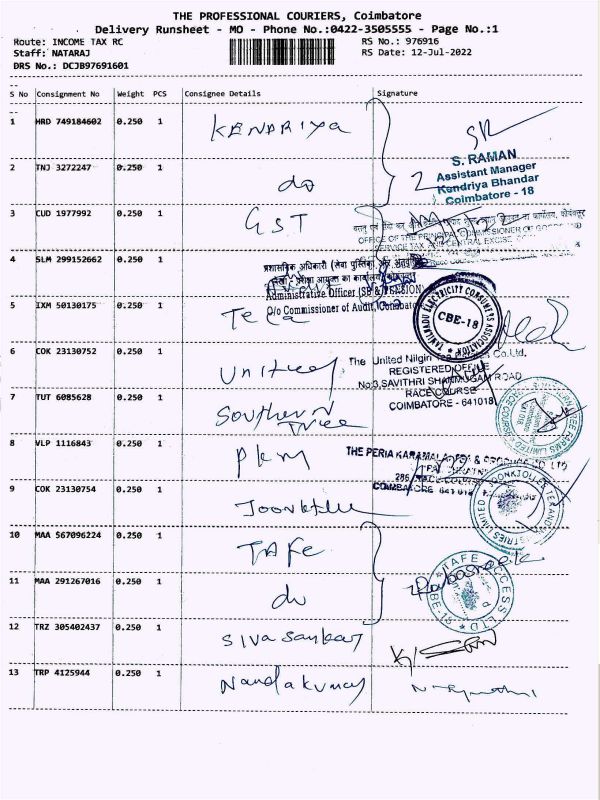 THE PROFESSIONAL COURIERS, Coimbatore
Delivery Runsheet - MO - Phone No.:0422-3505555 - Page No.:1
Route: INCOME TAX RC
RS No.: 976916
Staff: NATARAJ
RS Date: 12-Jul-2022
DRS No.: DCJB97691601
S No Consignment No Weight PCS Consignee Details Signature
1 HRD 749184602 0.250 1 KENDRIYA
S. RAMAN
Assistant Manager
Kendriya Bhandar
Coimbatore - 18
2 TNJ 3272247 0.250 1 do 2
3 CUD 1977992 0.250 1 GST
OFFICE OF THE PRINCIPAL COMMISSIONER OF GOODS AND
SERVICE TAX AND CENTRAL EXCISE
4 SLM 299152662 0.250 1
प्रशासनिक अधिकारी (सेवा पुस्तिका और
Administrative Officer (SB & PENSION)
O/o Commissioner of Audit, Coimbatore
5 IXM 50130175 0.250 1 Teca
TAMILNADU ELECTRICITY CONSUMERS ASSOCIATION
CBE-18
6 COK 23130752 0.250 1 United
The United Nilgiri Tea Co.Ltd.
REGISTERED OFFICE
No:3, SAVITHRI SHANMUGAM ROAD
RACE COURSE
COIMBATORE - 641018
7 TUT 6085628 0.250 1 Southern Tree
8 VLP 1116843 0.250 1 PKM
THE PERIA KARAMALAI TEA & PRODUCE CO LTD
286, RACE COURSE
COIMBATORE 641 018
9 COK 23130754 0.250 1 Joonktollee
10 MAA 567096224 0.250 1 TAFE
11 MAA 291267016 0.250 1 do
TAFE ACCESS LTD
CBE-18
12 TRZ 305402437 0.250 1 Sivasankar
13 TRP 4125944 0.250 1 Nandakumar